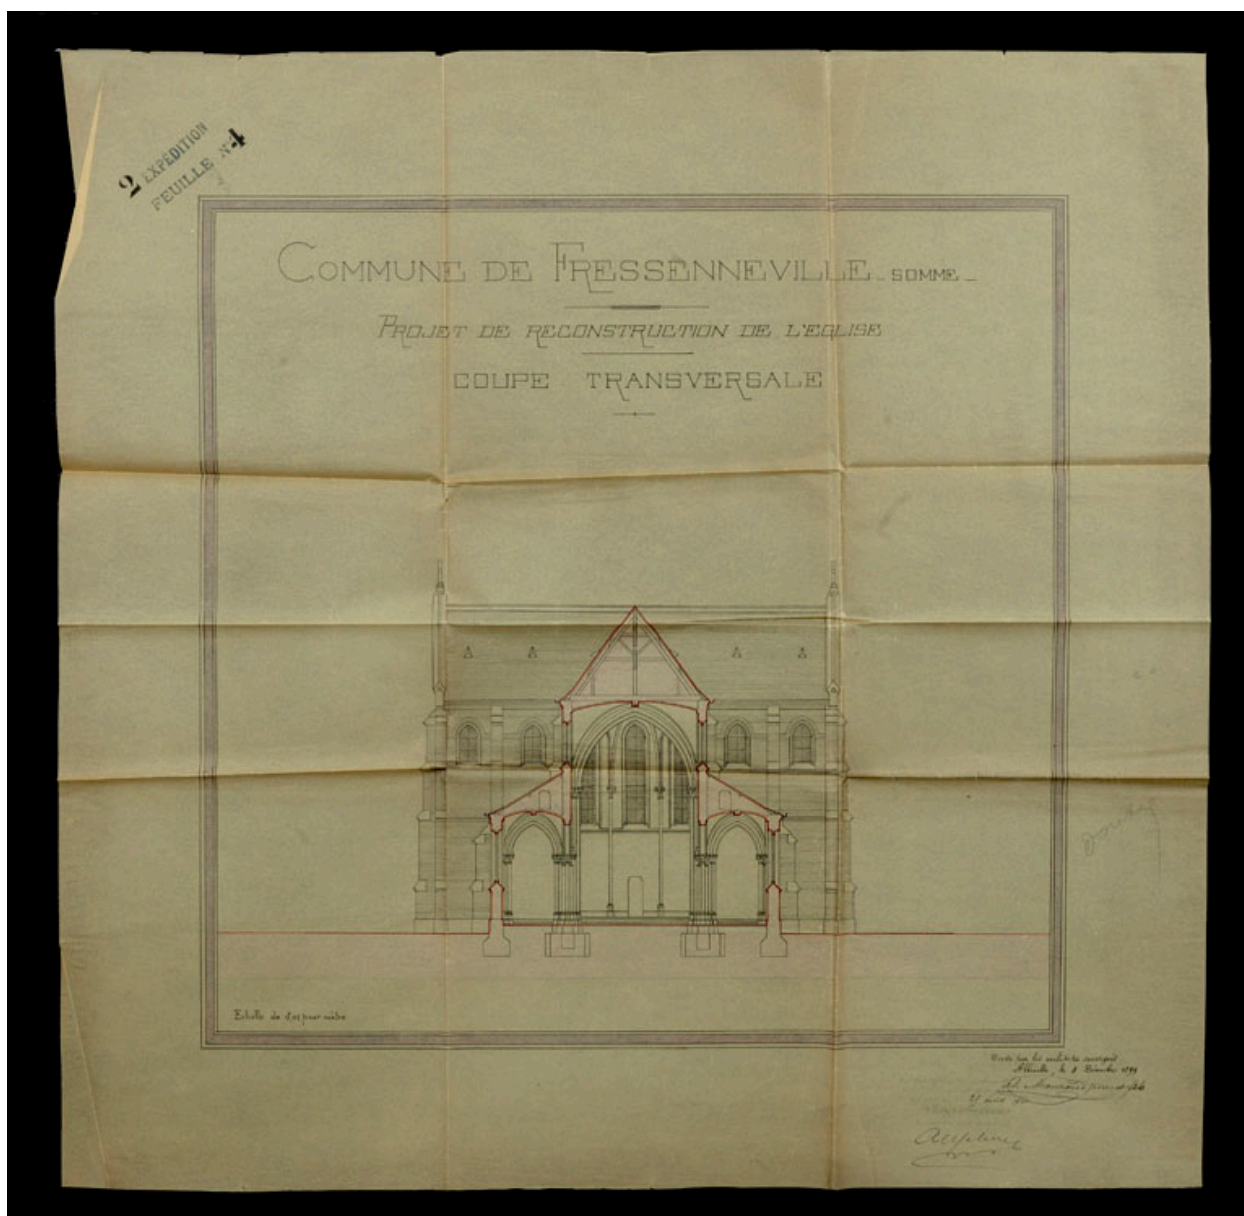 2 EXPÉDITION
FEUILLE N° 4
COMMUNE DE FRESSENNEVILLE _ SOMME _
PROJET DE RECONSTRUCTION DE L'EGLISE
COUPE TRANSVERSALE
Echelle de 0,01 pour mètre
Dressé par les architectes soussignés
Abbeville, le 8 Décembre 1899